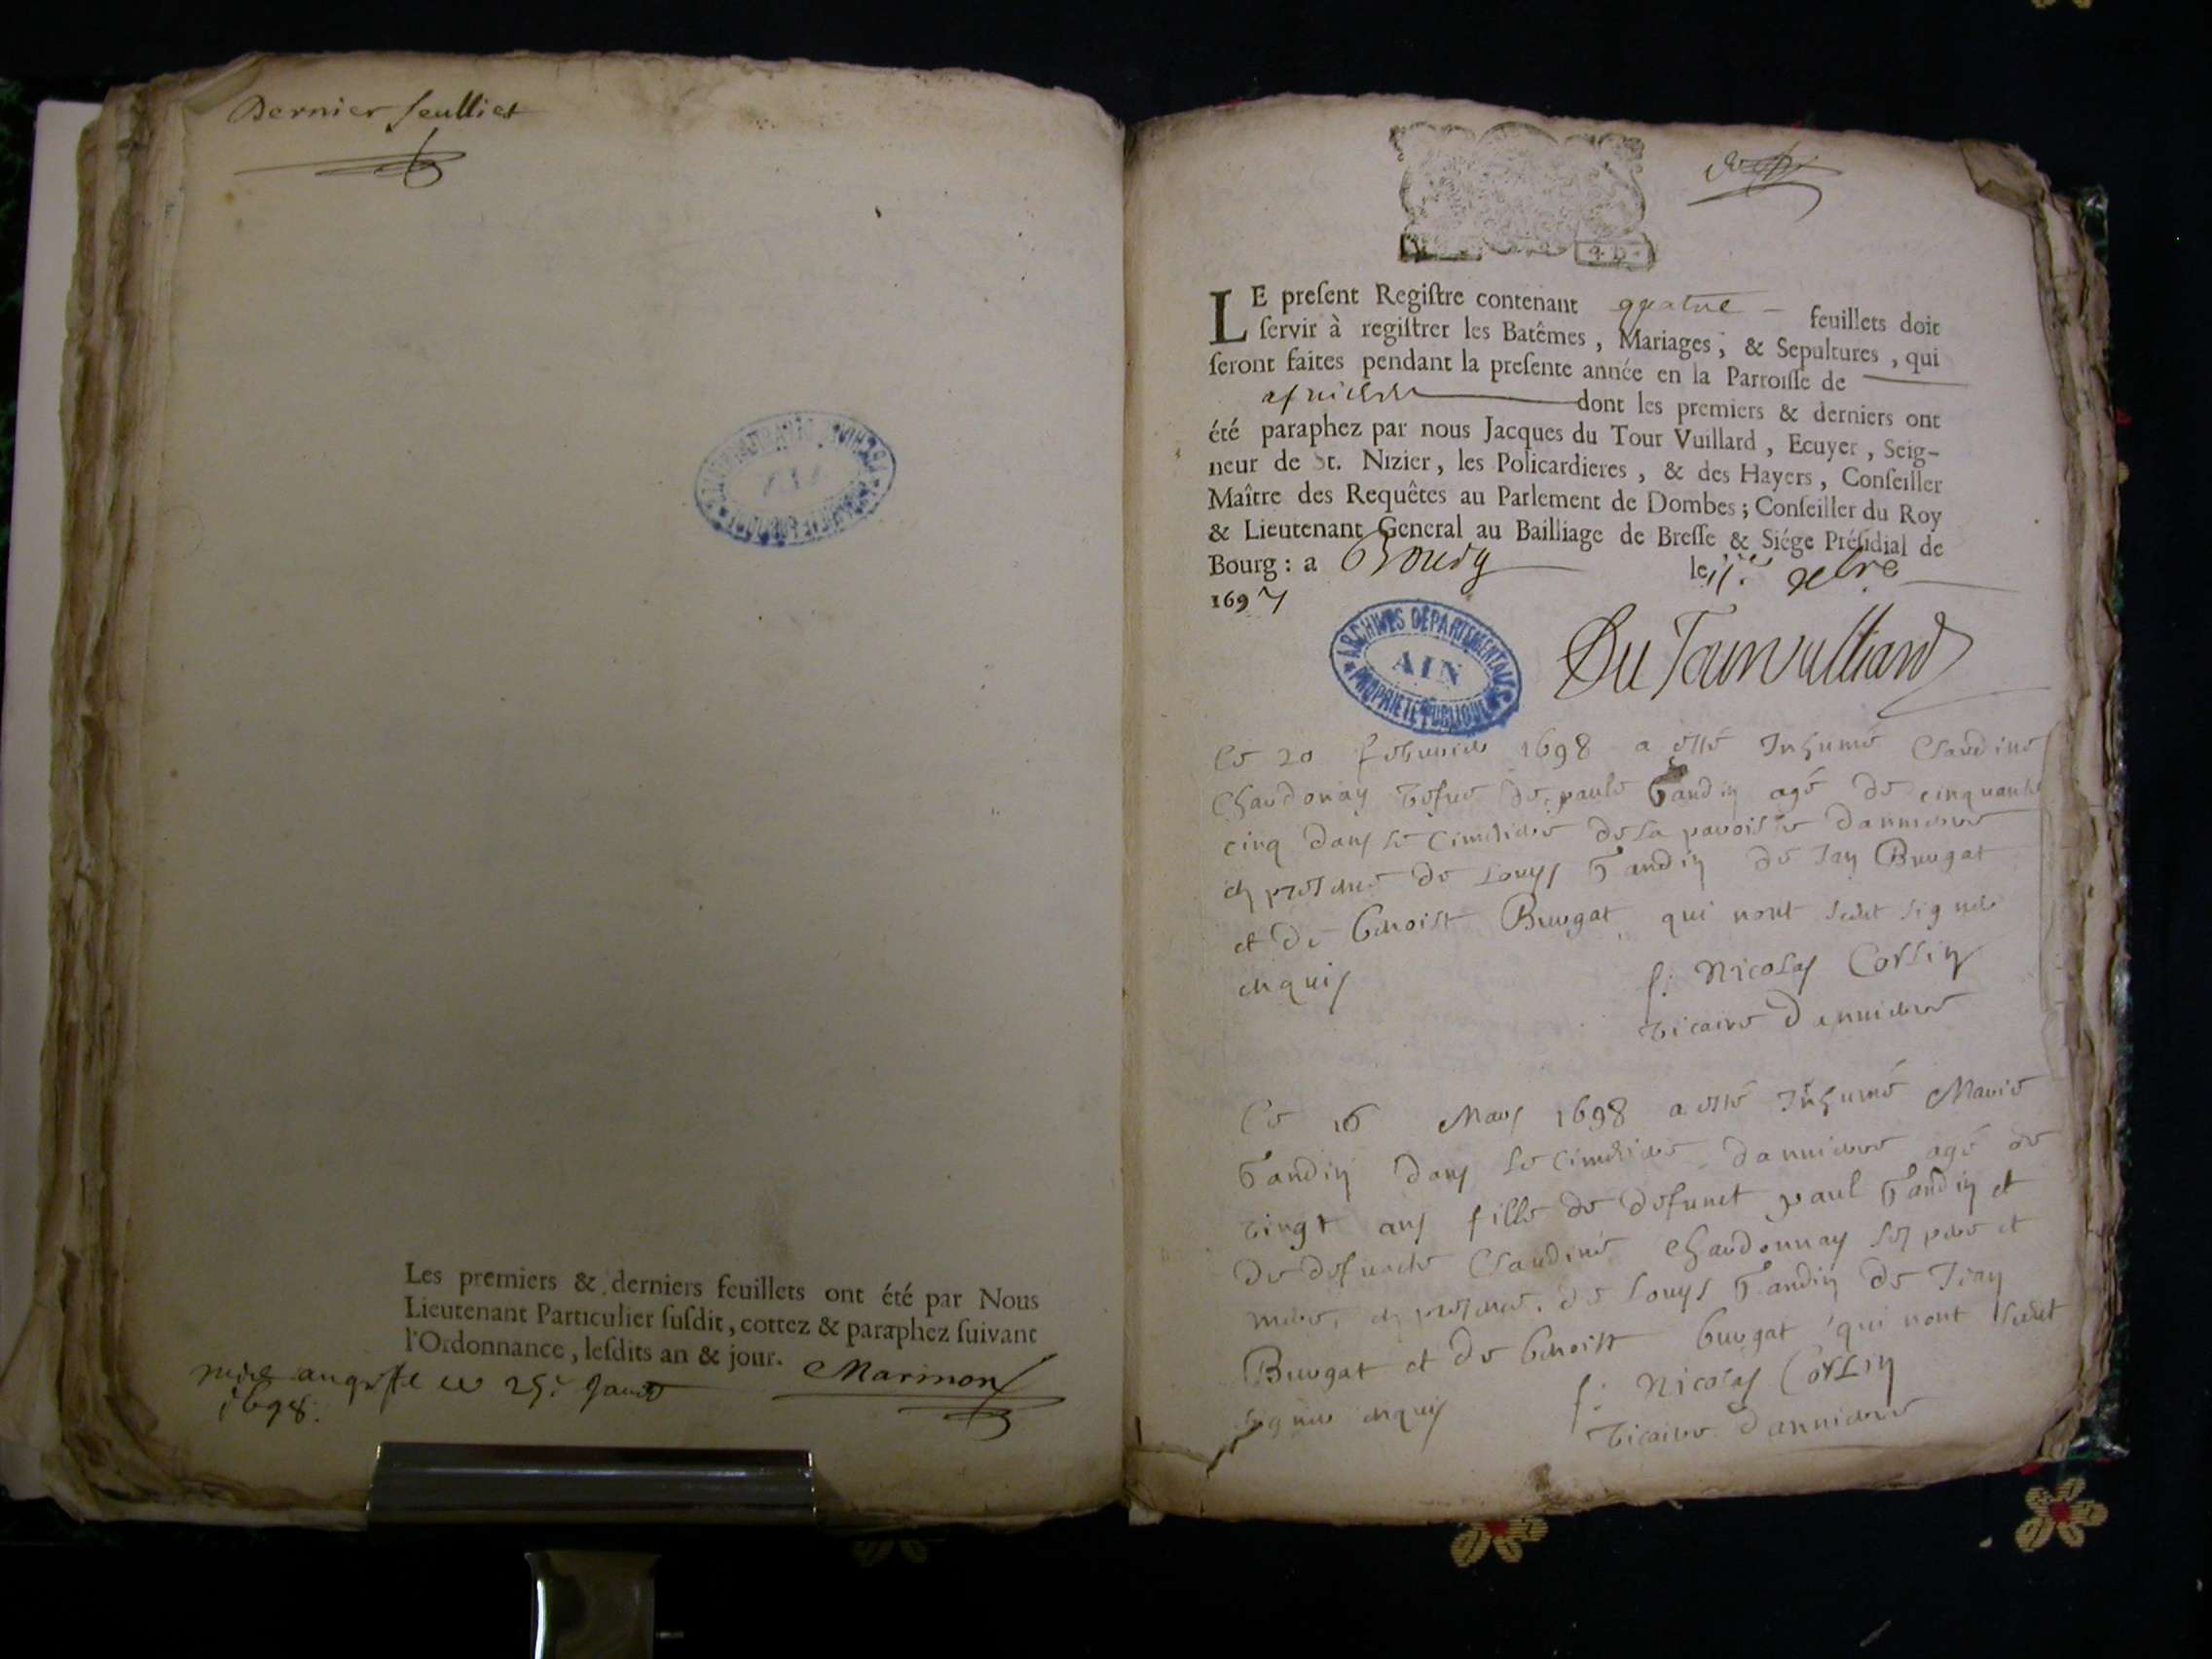 Dernier feulliet
Les premiers & derniers feuillets ont été par Nous
Lieutenant Particulier ſuſdit, cottez & paraphez ſuivant
l'Ordonnance, leſdits an & jour. Marinon
25e
1698.
LE preſent Regiſtre contenant quatre feuillets doit
ſervir à regiſtrer les Batêmes, Mariages, & Sepultures, qui
ſeront faites pendant la preſente année en la Parroiſſe de
dont les premiers & derniers ont
été paraphez par nous Jacques du Tour Vuillard, Ecuyer, Seig-
neur de St. Nizier, les Policardieres, & des Hayers, Conſeiller
Maître des Requêtes au Parlement de Dombes; Conſeiller du Roy
& Lieutenant General au Bailliage de Breſſe & Siége Préſidial de
Bourg: a Bourg le xbre
1697
ARCHIVES DÉPARTEMENTALES
AIN
PROPRIÉTÉ PUBLIQUE
Du Tourvulliard
Ce 20 februier 1698 a esté Inhumé Claudine
Chardonay vefue de paule Gandin agé de cinquante
cinq dans le cimetiere de la paroisse dannieres
en presence de Louys Gandin de Jan Burgat
et de benoist Burgat qui nont sceut signer
enquis f. Nicolas Corsin
vicaire dannieres
Ce 16 Mars 1698 a esté Inhumé Marie
Gandin dans le cimetiere dannieres agé de
vingt ans fille de defunct paul Gandin et
de defuncte Claudine Chardonnay ses pere et
mere, en presence de Louys Gandin de Jean
Burgat et de benoist burgat qui nont sceut
signer enquis f. Nicolas Corsin
vicaire dannieres